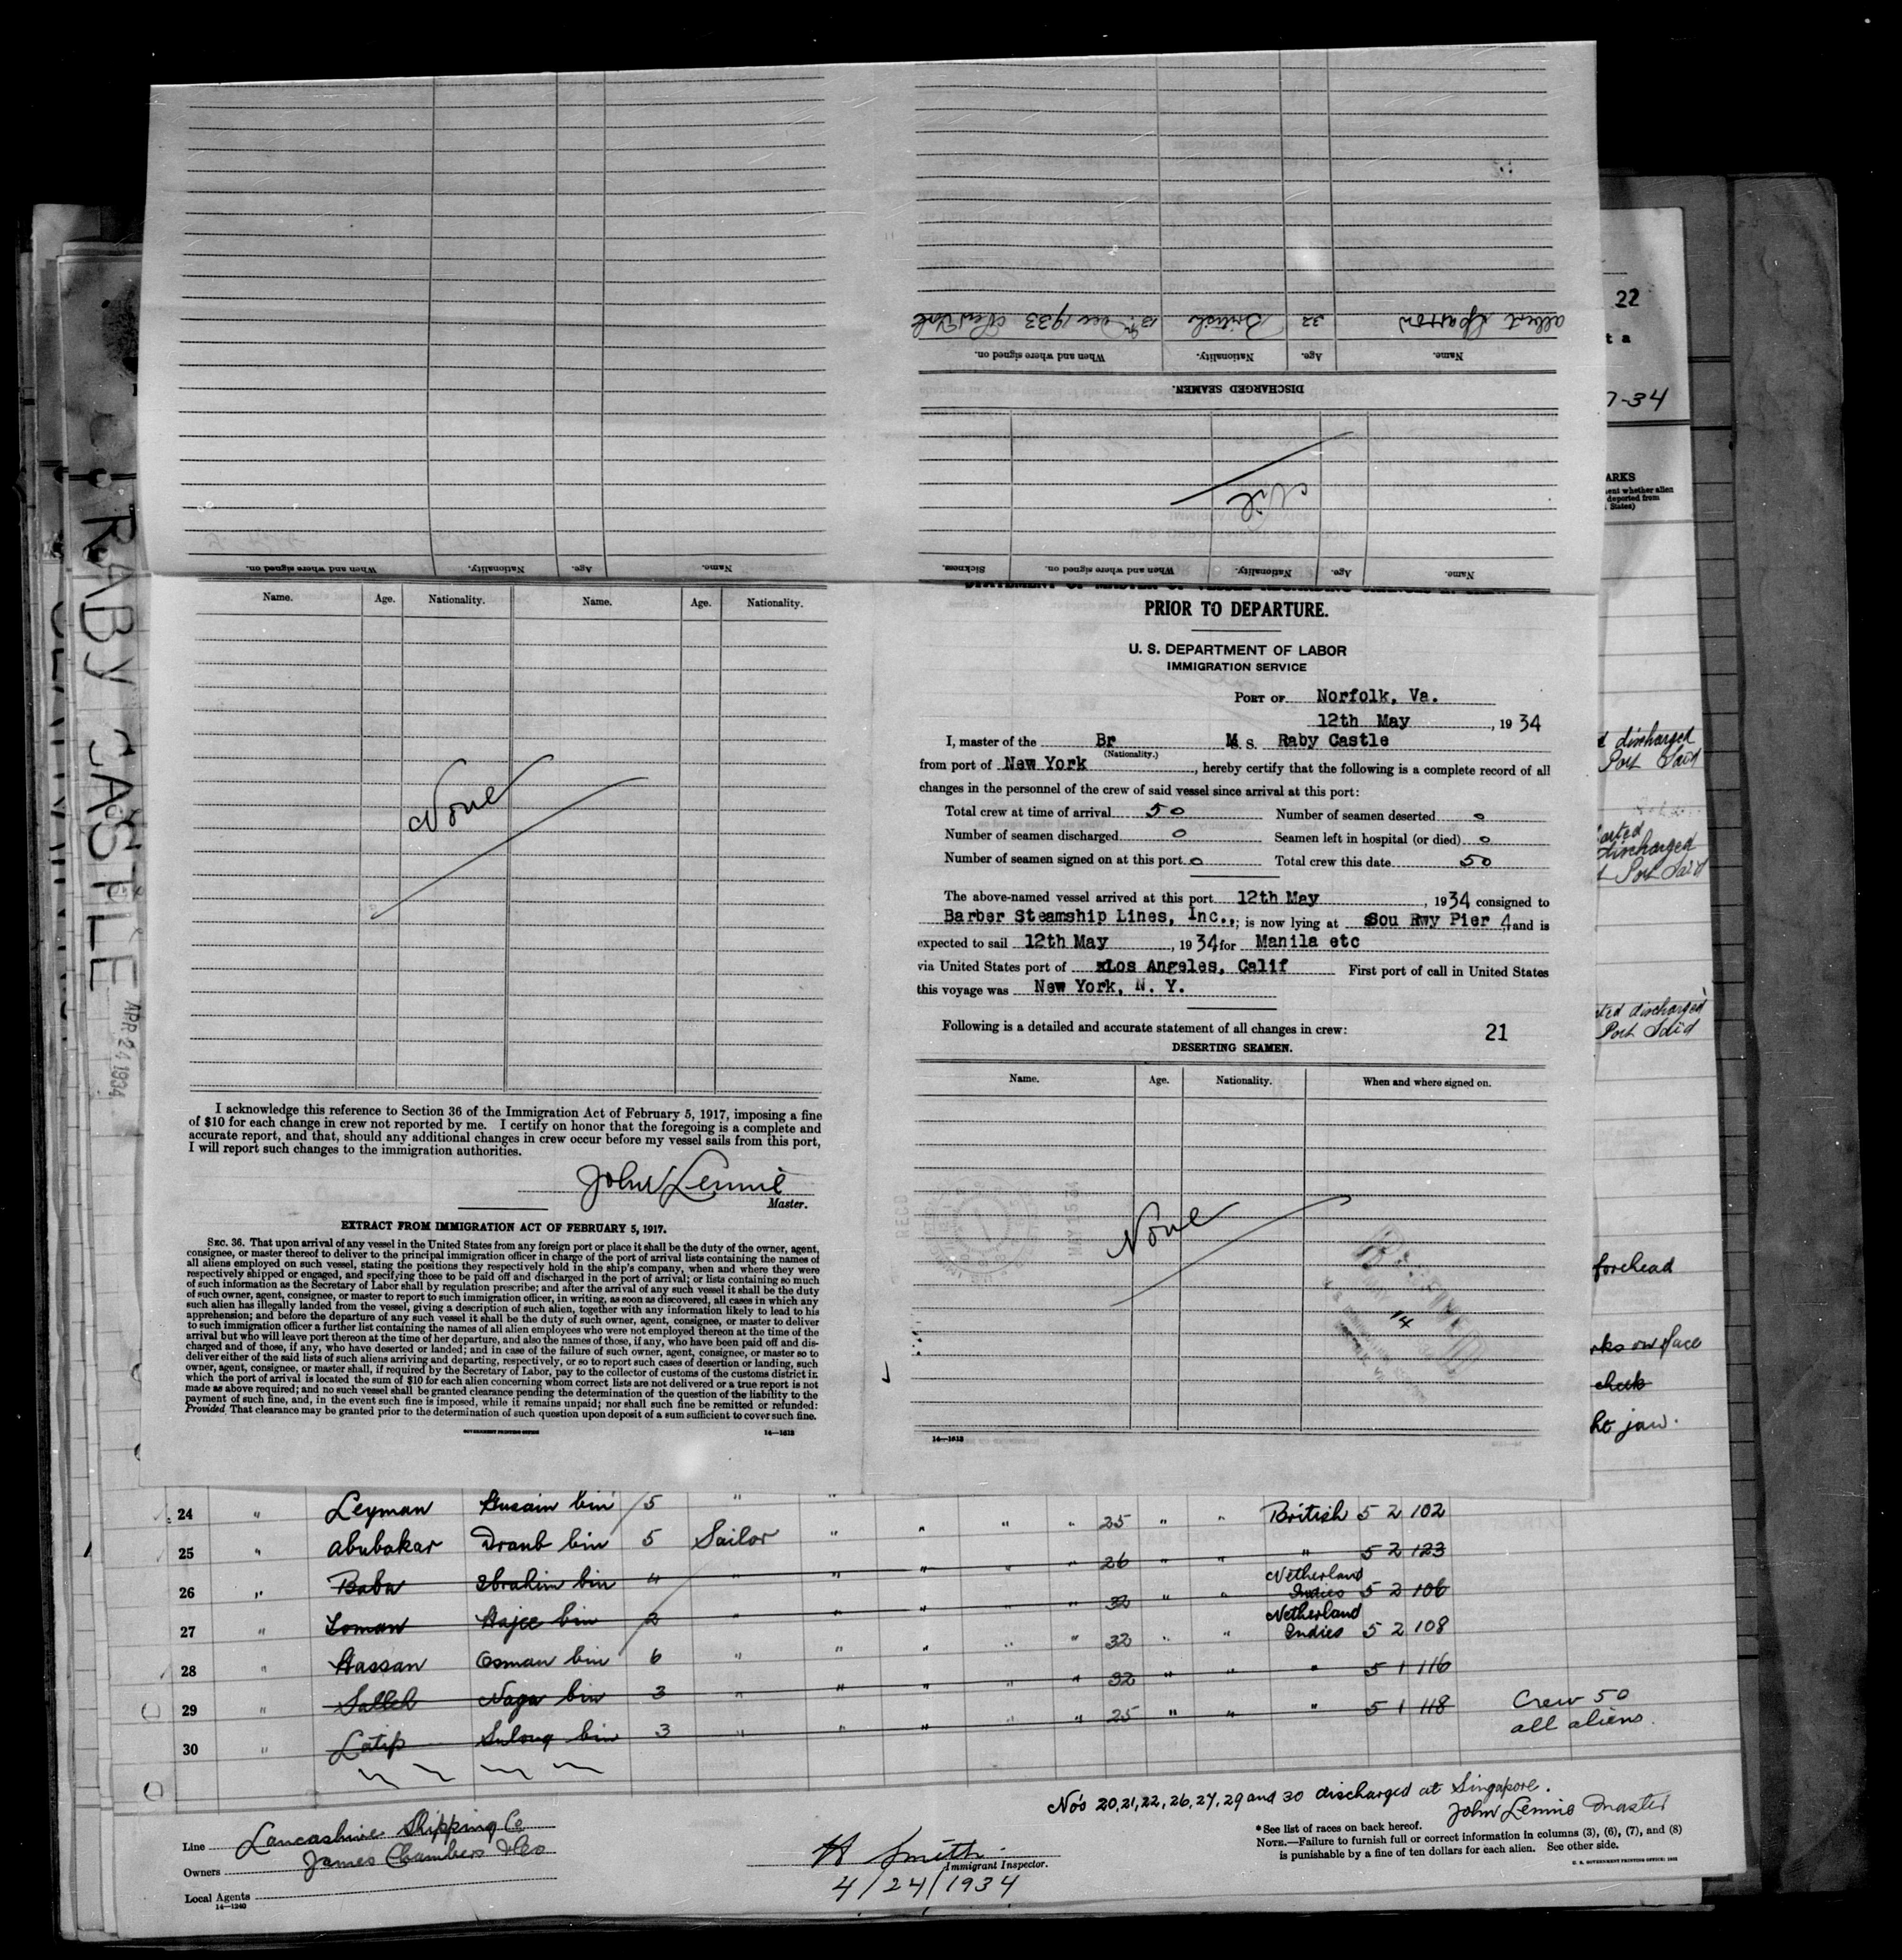 22
t a
7-34
ARKS
ent whether alien
deported from
States)
RABY CASTLE
APR 24 1934
Albert Sparrow 32 British 13th Dec 1933 New York
Name. Age. Nationality. When and where signed on.
DISCHARGED SEAMEN.
Nil
Name. Age. Nationality. When and where signed on. Sickness.
Name. Age. Nationality. When and where signed on.
Name. Age. Nationality. Name. Age. Nationality.
None
I acknowledge this reference to Section 36 of the Immigration Act of February 5, 1917, imposing a fine
of $10 for each change in crew not reported by me. I certify on honor that the foregoing is a complete and
accurate report, and that, should any additional changes in crew occur before my vessel sails from this port,
I will report such changes to the immigration authorities.
John Lennie
Master.
EXTRACT FROM IMMIGRATION ACT OF FEBRUARY 5, 1917.
SEC. 36. That upon arrival of any vessel in the United States from any foreign port or place it shall be the duty of the owner, agent,
consignee, or master thereof to deliver to the principal immigration officer in charge of the port of arrival lists containing the names of
all aliens employed on such vessel, stating the positions they respectively hold in the ship's company, when and where they were
respectively shipped or engaged, and specifying those to be paid off and discharged in the port of arrival; or lists containing so much
of such information as the Secretary of Labor shall by regulation prescribe; and after the arrival of any such vessel it shall be the duty
of such owner, agent, consignee, or master to report to such immigration officer, in writing, as soon as discovered, all cases in which any
such alien has illegally landed from the vessel, giving a description of such alien, together with any information likely to lead to his
apprehension; and before the departure of any such vessel it shall be the duty of such owner, agent, consignee, or master to deliver
to such immigration officer a further list containing the names of all alien employees who were not employed thereon at the time of the
arrival but who will leave port thereon at the time of her departure, and also the names of those, if any, who have been paid off and dis-
charged and of those, if any, who have deserted or landed; and in case of the failure of such owner, agent, consignee, or master so to
deliver either of the said lists of such aliens arriving and departing, respectively, or so to report such cases of desertion or landing, such
owner, agent, consignee, or master shall, if required by the Secretary of Labor, pay to the collector of customs of the customs district in
which the port of arrival is located the sum of $10 for each alien concerning whom correct lists are not delivered or a true report is not
made as above required; and no such vessel shall be granted clearance pending the determination of the question of the liability to the
payment of such fine, and, in the event such fine is imposed, while it remains unpaid; nor shall such fine be remitted or refunded:
Provided That clearance may be granted prior to the determination of such question upon deposit of a sum sufficient to cover such fine.
GOVERNMENT PRINTING OFFICE 14—1613
PRIOR TO DEPARTURE.
U. S. DEPARTMENT OF LABOR
IMMIGRATION SERVICE
PORT OF Norfolk, Va.
12th May, 1934
I, master of the Br M. S. Raby Castle
(Nationality.)
from port of New York, hereby certify that the following is a complete record of all
changes in the personnel of the crew of said vessel since arrival at this port:
Total crew at time of arrival 50 Number of seamen deserted 0
Number of seamen discharged 0 Seamen left in hospital (or died) 0
Number of seamen signed on at this port 0 Total crew this date 50
The above-named vessel arrived at this port 12th May, 1934 consigned to
Barber Steamship Lines, Inc.,; is now lying at Sou Rwy Pier 4 and is
expected to sail 12th May, 1934, for Manila etc
via United States port of xLos Angeles, Calif First port of call in United States
this voyage was New York, N. Y.
Following is a detailed and accurate statement of all changes in crew: 21
DESERTING SEAMEN.
Name. Age. Nationality. When and where signed on.
None
RECD
MAY 15 34
14
14—1613
d discharged
Port Said
discharged
Port Said
ted discharged
Port Said
forehead
rks on face
cheek
ht jaw.
24 " Leyman Husain bin 5 " "
25 " Abubakar Draub bin 5 Sailor " " " " 25 " " British 5 2 102
26 " Baba Ibrahim bin 4 " " " " " 26 " " " 5 2 123
27 " Loman Hajee bin 2 " " " " " 32 " " Netherland Indies 5 2 106
28 " Hassan Osman bin 6 " " " " " 32 " " Netherland Indies 5 2 108
29 " Salleh Naga bin 3 " " " " " 32 " " " 5 1 116
30 " Latip Sulong bin 3 " " " " " 25 " " " 5 1 118
Crew 50
all aliens.
Nos 20,21,22,26,27,29 and 30 discharged at Singapore.
John Lennie Master
Line Lancashire Shipping Co
Owners James Chambers & Co
Local Agents
14—1240
H Smith
Immigrant Inspector.
4/24/1934
*See list of races on back hereof.
NOTE.—Failure to furnish full or correct information in columns (3), (6), (7), and (8)
is punishable by a fine of ten dollars for each alien. See other side.